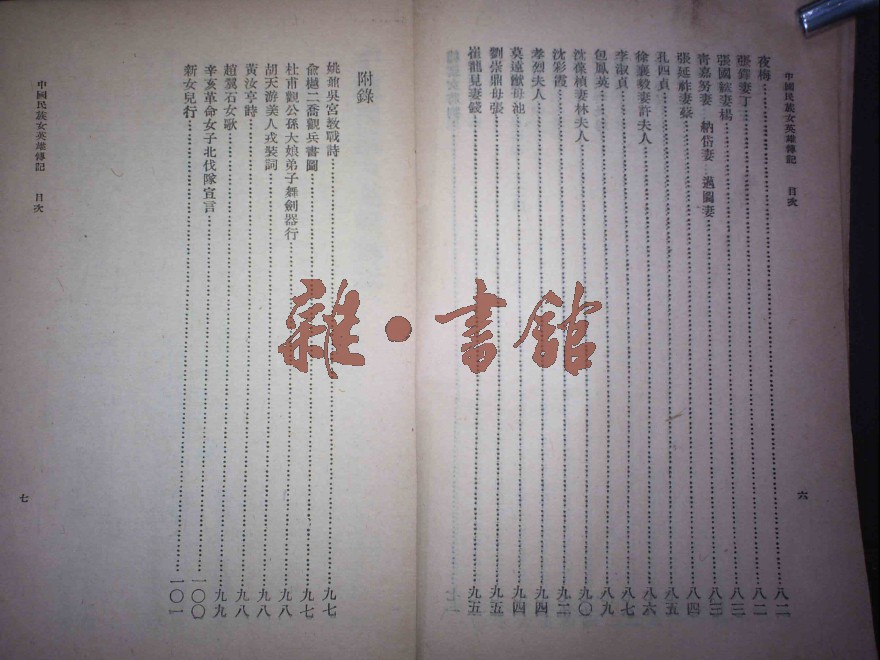 中國民族女英雄傳記 目次
夜梅……八二
張鋒妻丁……八二
張國紘妻楊……八三
靑嘉努妻 納岱妻 邁圖妻……八三
張延祚妻蔡……八四
孔四貞……八五
徐襄毅妻許夫人……八六
李淑貞……八七
包鳳英……八九
沈葆楨妻林夫人……九〇
沈彩霞……九二
孝烈夫人……九四
莫遠猷母池……九四
劉崇鼎母張……九五
崔龍見妻錢……九五
六
附錄
姚鼐吳宮教戰詩……九七
兪樾二喬觀兵書圖……九七
杜甫觀公孫大娘弟子舞劍器行……九八
胡天游美人戎裝詞……九八
黃汝亨詩……九八
趙翼石女歌……九九
辛亥革命女子北伐隊宣言……一〇〇
新女兒行……一〇一
中國民族女英雄傳記 目次
七
雜·書館